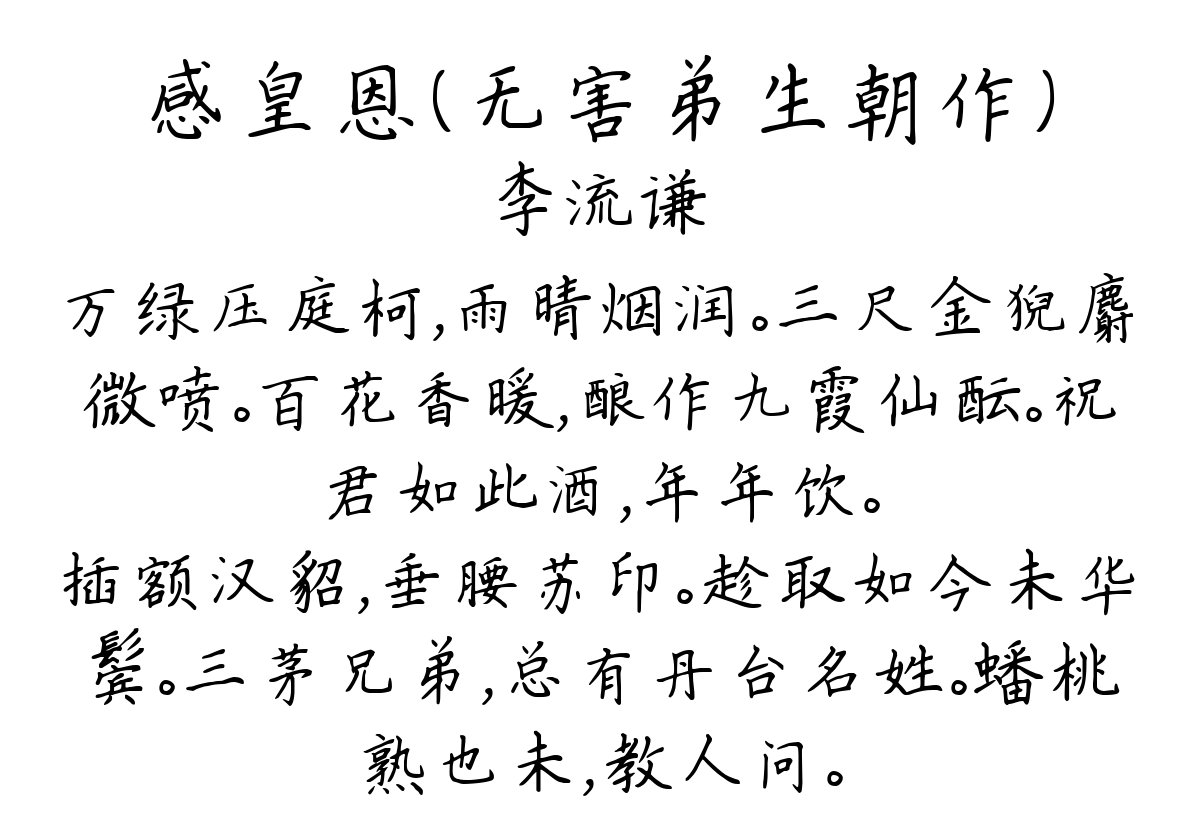 感皇恩(无害弟生朝作)
李流谦
万绿压庭柯,雨晴烟润。三尺金猊麝
微喷。百花香暖,酿作九霞仙酝。祝
君如此酒,年年饮。
插额汉貂,垂腰苏印。趁取如今未华
鬓。三茅兄弟,总有丹台名姓。蟠桃
熟也未,教人问。